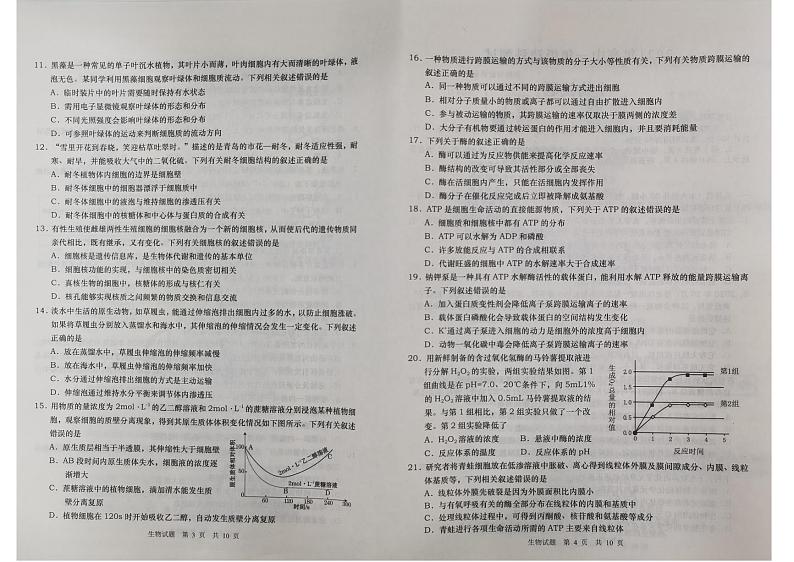 11. 黑藻是一种常见的单子叶沉水植物，其叶片小而薄，叶肉细胞内有大而清晰的叶绿体，液
泡无色。某同学利用黑藻细胞观察叶绿体和细胞质流动。下列相关叙述错误的是
A. 临时装片中的叶片需要随时保持有水状态
B. 需用电子显微镜观察叶绿体的形态和分布
C. 不同光照强度会影响叶绿体的形态和分布
D. 可参照叶绿体的运动来判断细胞质的流动方向
12. “雪里开花到春晓，笑迎枯草吐翠时。”描述的是青岛的市花—耐冬，耐冬适应性强，耐
寒、耐旱，并能吸收大气中的二氧化硫。下列有关耐冬细胞结构的叙述正确的是
A. 耐冬植物体内细胞的边界是细胞壁
B. 耐冬体细胞中的细胞器漂浮于细胞质中
C. 耐冬体细胞中的液泡与维持细胞的渗透压有关
D. 耐冬体细胞中的核糖体和中心体与蛋白质的合成有关
13. 有性生殖使雌雄两性生殖细胞的细胞核融合为一个新的细胞核，从而使后代的遗传物质同
亲代相比，既有继承，又有变化。下列有关细胞核的叙述错误的是
A. 细胞核是遗传信息库，是生物体代谢和遗传的基本单位
B. 细胞核功能的实现，与细胞核中的染色质密切相关
C. 真核生物的细胞中，核糖体的形成与核仁有关
D. 核孔能够实现核质之间频繁的物质交换和信息交流
14. 淡水中生活的原生动物，如草履虫，能通过伸缩泡排出细胞内过多的水，以防止细胞涨破。
如果将草履虫分别放入蒸馏水和海水中，其伸缩泡的伸缩情况会发生一定变化。下列叙述
正确的是
A. 放在蒸馏水中，草履虫伸缩泡的伸缩频率减慢
B. 放在海水中，草履虫伸缩泡的伸缩频率加快
C. 水分通过伸缩泡排出细胞的方式是主动运输
D. 伸缩泡通过维持水分平衡来调节体内渗透压
15. 用物质的量浓度为 2mol·L⁻¹的乙二醇溶液和 2mol·L⁻¹的蔗糖溶液分别浸泡某种植物细
胞，观察细胞的质壁分离现象，得到其原生质体体积变化情况如下图所示。下列有关叙述
错误的是
A. 原生质层相当于半透膜，其伸缩性大于细胞壁
B. AB 段时间内原生质体失水，细胞液的浓度逐
渐增大
C. 蔗糖溶液中的植物细胞，滴加清水能发生质
壁分离复原
D. 植物细胞在 120s 时开始吸收乙二醇，自动发生质壁分离复原
原生质体相对体积
A
2mol·L⁻¹乙二醇溶液
C
2mol·L⁻¹蔗糖溶液
B
D
60 120 180 240 300
时间/s
生物试题 第 3 页 共 10 页
16. 一种物质进行跨膜运输的方式与该物质的分子大小等性质有关，下列有关物质跨膜运输的
叙述正确的是
A. 同一种物质可以通过不同的跨膜运输方式进出细胞
B. 相对分子质量小的物质或离子都可以通过自由扩散进入细胞内
C. 参与被动运输的物质，其跨膜运输的速率仅取决于膜两侧的浓度差
D. 大分子有机物要通过转运蛋白的作用才能进入细胞内，并且要消耗能量
17. 下列关于酶的叙述，正确的是
A. 酶可以通过为反应物供能来提高化学反应速率
B. 酶结构的改变可导致其活性部分或全部丧失
C. 酶在活细胞内产生，只能在活细胞内发挥作用
D. 酶分子在催化反应完成后立即被降解成氨基酸
18. ATP 是细胞生命活动的直接能源物质，下列关于 ATP 的叙述错误的是
A. 细胞质和细胞核中都有 ATP 的分布
B. ATP 可以水解为 ADP 和磷酸
C. 许多放能反应与 ATP 的合成相联系
D. 代谢旺盛的细胞中 ATP 的水解速率大于合成速率
19. 钠钾泵是一种具有 ATP 水解酶活性的载体蛋白，能利用水解 ATP 释放的能量跨膜运输离
子。下列叙述错误的是
A. 加入蛋白质变性剂会降低离子泵跨膜运输离子的速率
B. 载体蛋白磷酸化会导致载体蛋白的空间结构发生变化
C. K⁺通过离子泵进入细胞的动力是细胞外的浓度高于细胞内
D. 动物一氧化碳中毒会降低离子泵跨膜运输离子的速率
20. 用新鲜制备的含过氧化氢酶的马铃薯提取液进
行分解 H₂O₂ 的实验，两组实验结果如图。第 1
组曲线是在 pH=7.0、20℃条件下，向 5mL1%
的 H₂O₂ 溶液中加入 0.5mL 马铃薯提取液的结
果。与第 1 组相比，第 2 组实验只做了一个改
变。第 2 组实验降低了
A. H₂O₂ 溶液的浓度 B. 悬液中酶的浓度
C. 反应体系的温度 D. 反应体系的 pH
生成O₂总量的相对值
2.0
1.5
1.0
0.5
0 1 2 3 4 5
第1组
第2组
反应时间
21. 研究者将青蛙细胞放在低渗溶液中胀破、离心得到线粒体外膜及膜间隙成分、内膜、线粒
体基质等，下列相关叙述错误的是
A. 线粒体外膜先破裂是因为外膜面积比内膜小
B. 与有氧呼吸有关的酶全部分布在线粒体的内膜和基质中
C. 处理线粒体过程中，可得到丙酮酸、核苷酸和氨基酸等成分
D. 青蛙进行各项生命活动所需的 ATP 主要来自线粒体
生物试题 第 4 页 共 10 页